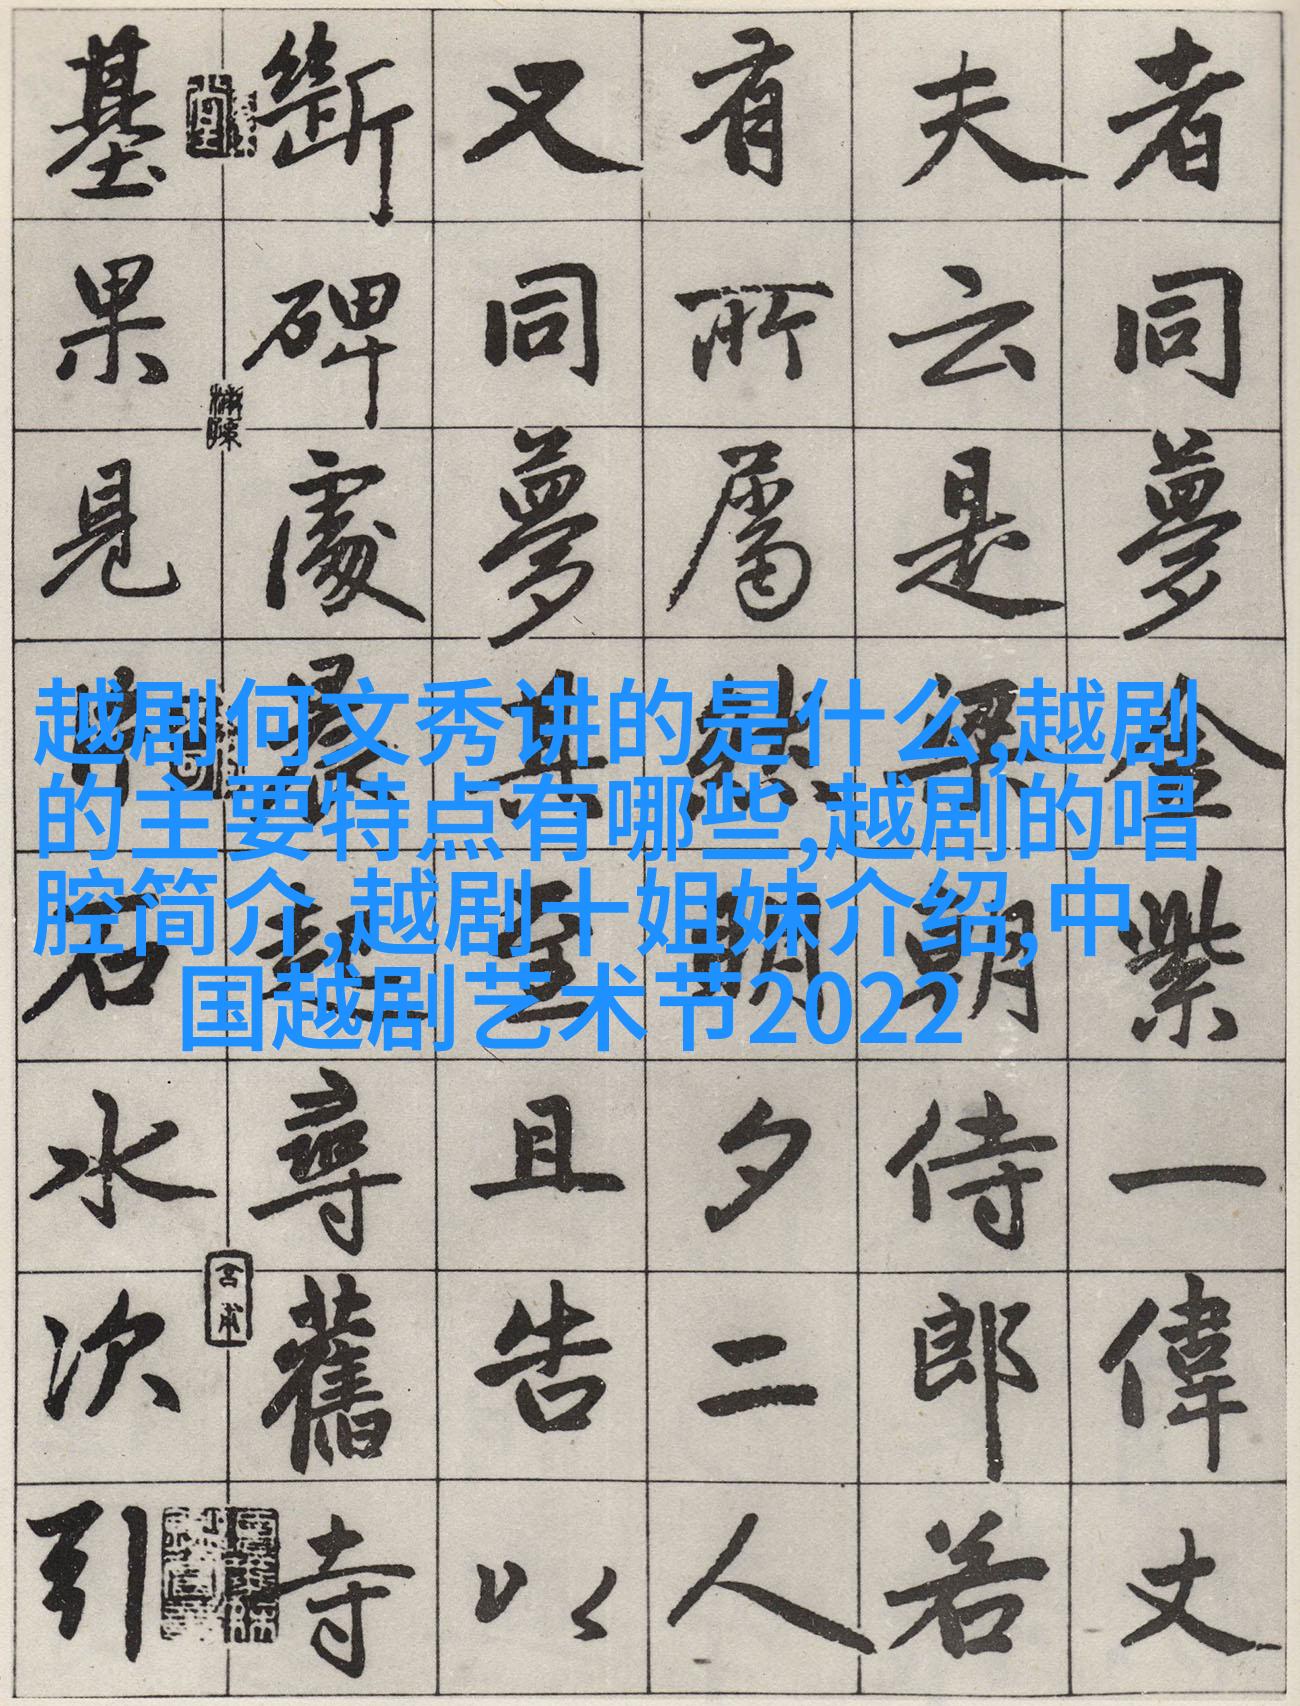 者同夢金紫一偉丈
夫云是朝侍郎若
有所屬然明夕二人
又同夢其至且告以
斷碑處尋舊寺
基果見石水次引
越剧何文秀讲的是什么,越剧
的主要特点有哪些,越剧的唱
腔简介,越剧十姐妹介绍,中
国越剧艺术节2022